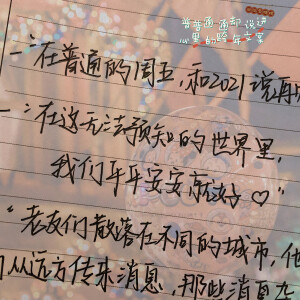 普普通通却说进
心里的跨年文案
一:在普通的周五,和2021说再
一:在这无法预知的世界里,
我们平平安安就好♡"
"老友们散落在不同的城市,他
们从远方传来消息,那些消息